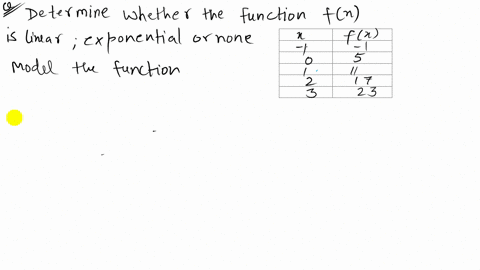 Q Determine whether the function f(x)
is linear ; exponential or none
Model the function
x f(x)
-1 -1
0 5
1 11
2 17
3 23